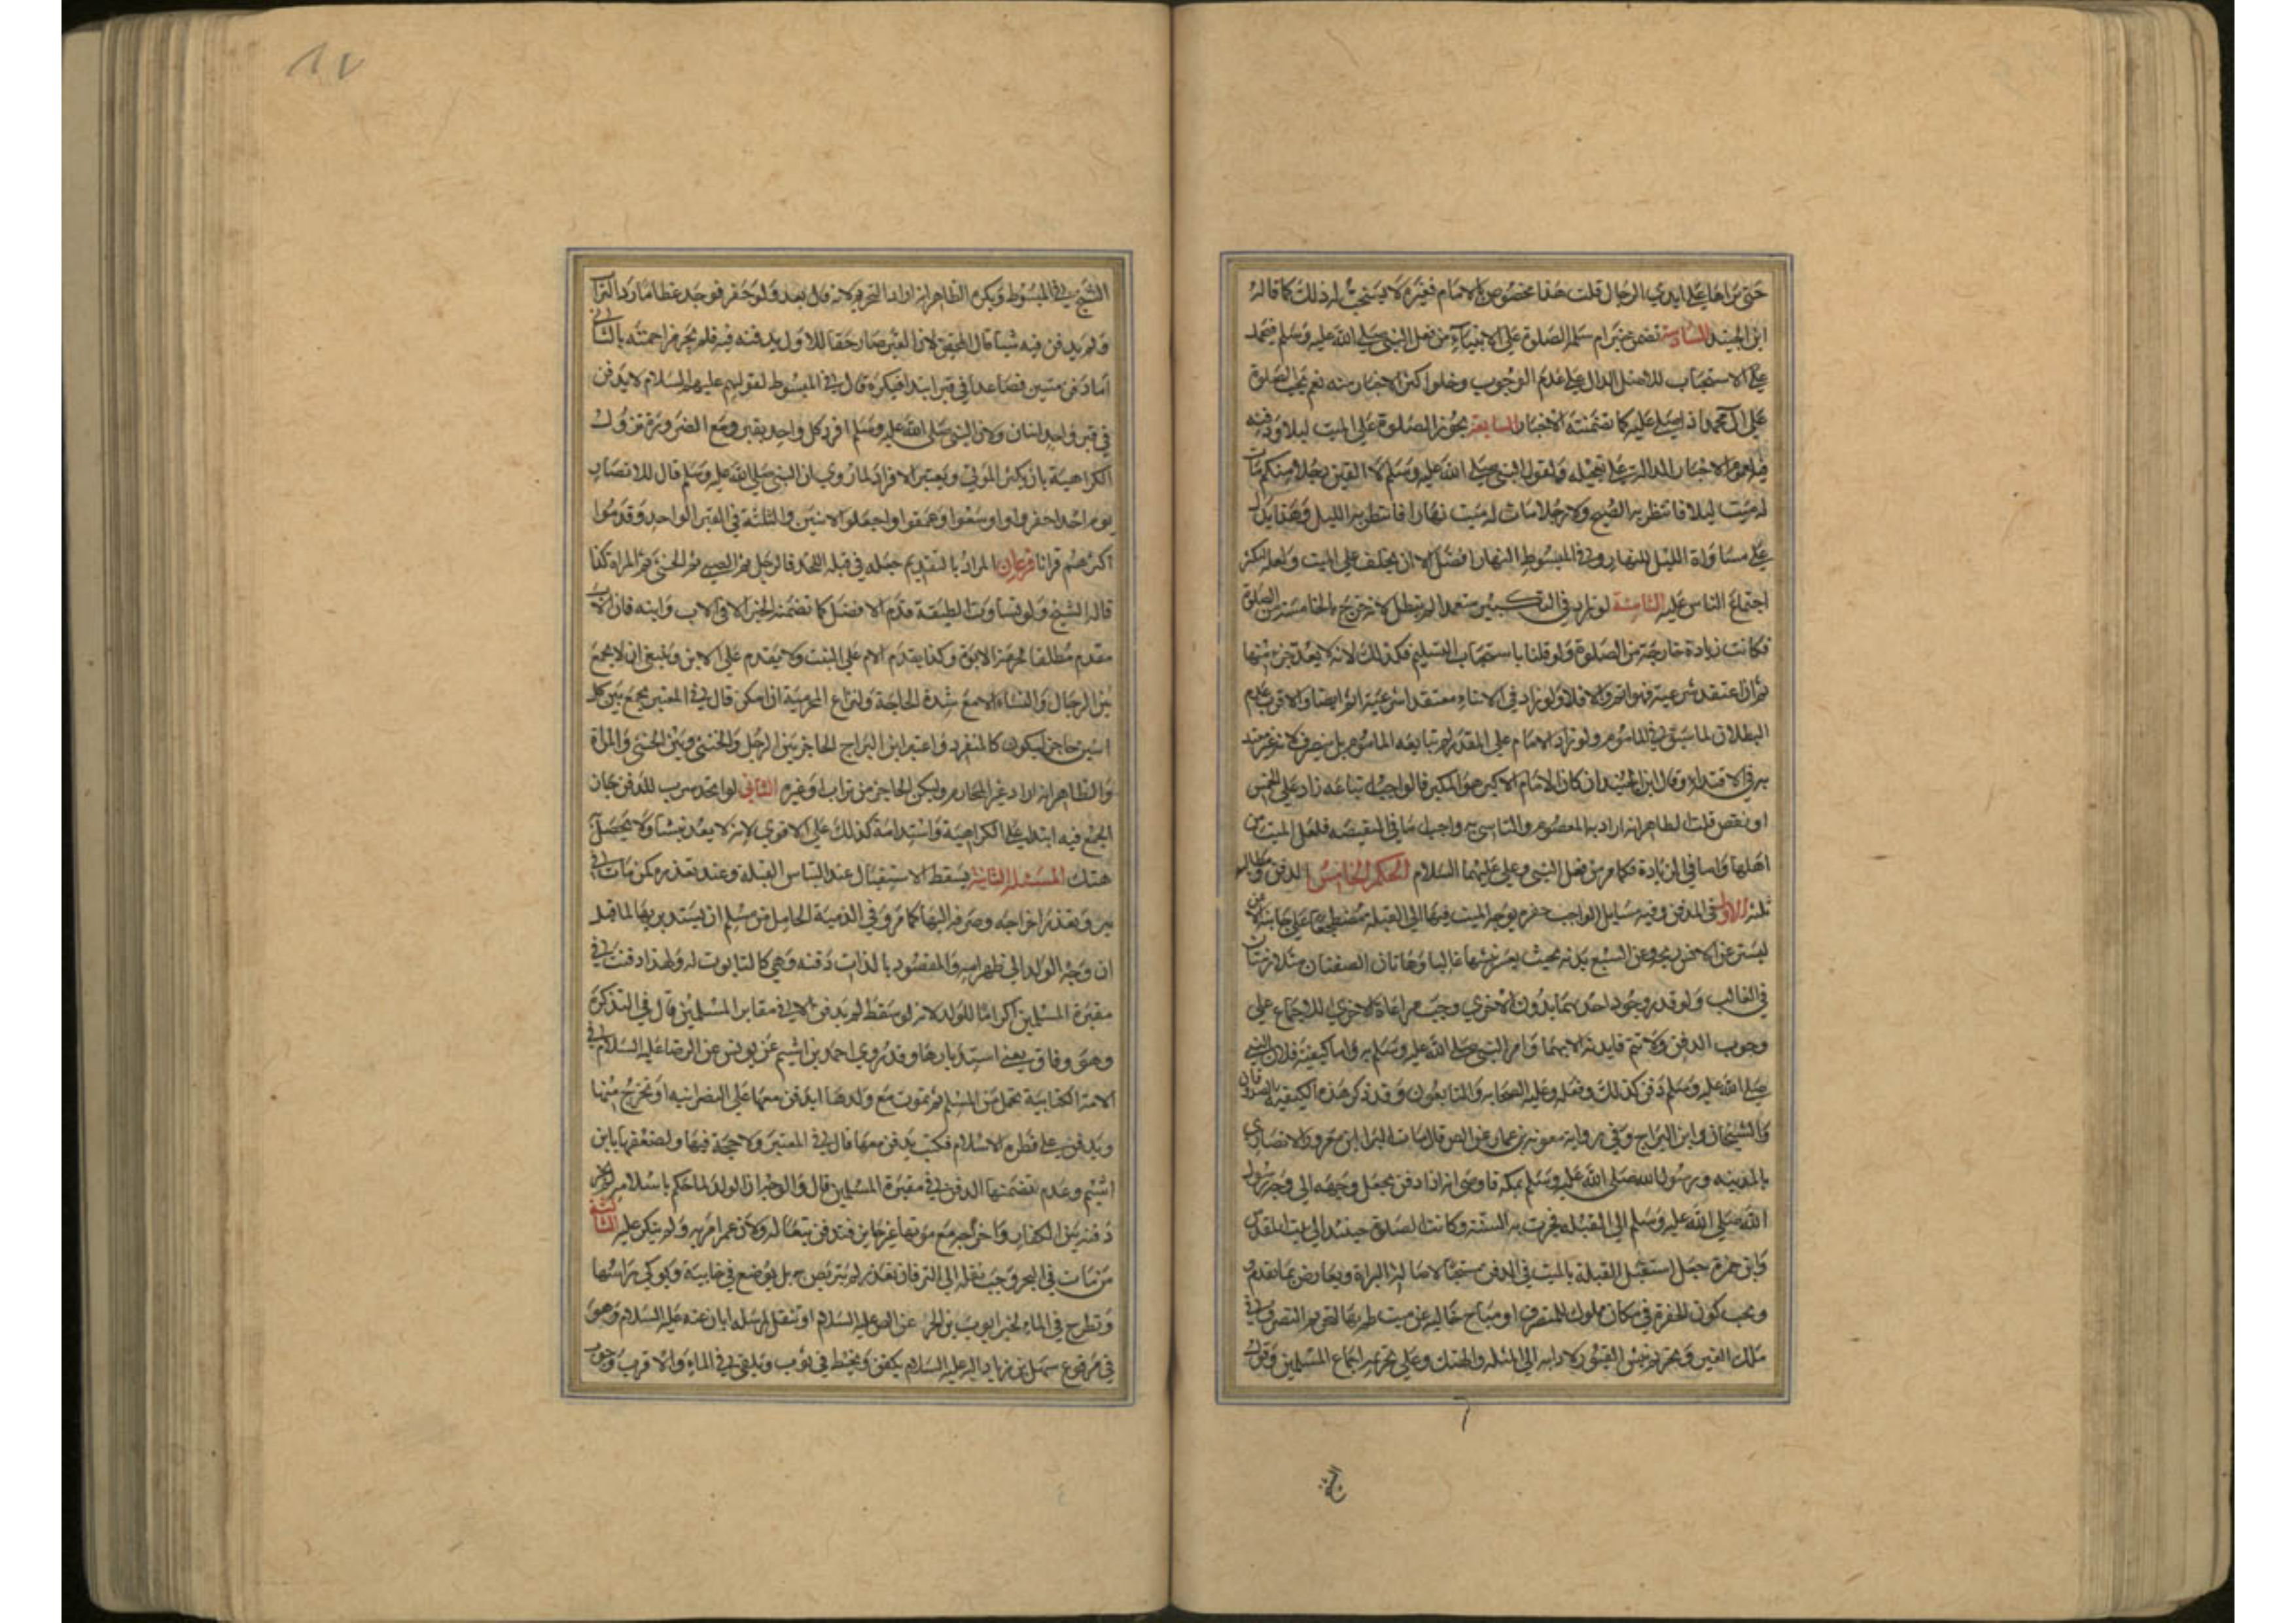 حتى نراها على ايدي الرجال قلت هذا مخصوص بالامام فغيره لا يستحب له ذلك كما قاله
ابن الجنيد السادسة تضمن خبر ام سلمة الصلوة على الانبياء من فعل النبي صلى الله عليه وسلم فيحمل
على الاستحباب للاصل الدال على عدم الوجوب وخلو اكثر الاخبار منه نعم تجب الصلوة
على آل محمد اذا صلى عليه كما تضمنته الاخبار السابعة يجوز الصلوة على الميت ليلا ودفنه
فيه لعموم الاخبار الدالة على تعجيله ولقول النبي صلى الله عليه وسلم لا الفين رجلا منكم مات
له ميت ليلا فانتظر به الصبح ولا رجلا مات له ميت نهارا فانتظر به الليل وهذا يدل
على مساواة الليل للنهار وفي المبسوط النهار افضل الا ان يخاف على الميت ولعله ليكثر
اجتماع الناس عليه الثامنة لو زاد في التكبير متعمدا لم تبطل لانه خرج بالخامسة من الصلوة
فكانت زيادة خارجة من الصلوة ولو قلنا باستحباب التسليم فكذلك لانه لا يعد جزء منها
ثم ان اعتقد شرعيته فهو اثم والا فلا ولو زاد في الاثناء معتقدا شرعيته اثم ايضا والاقرب عدم
البطلان لما سبق في الماموم ولو زاد الامام على المقدر لم يتابعه الماموم بل ينصرف لانه غير مقتد
به في الاقتداء وقال ابن الجنيد ان كان الامام الاكبر هو المكبر فالواجب اتباعه زاد على الخمس
او نقص قلت الظاهر انه اراد به المعصوم والتاسي به واجب اما في النقيصة فلعل الميت من
اهلها واما في الزيادة فكما مر من فعل النبي وعلي عليهما السلام الحكم الخامس الدفن ومطالبه
ثلثة الاول في المدفن وفيه مسايل الواجب حفرة يوجه الميت فيها الى القبلة مضطجعا على جانبه الايمن
ليستر عن الانس ريحه وعن السبع بدنه بحيث يعسر نبشها غالبا وهاتان الصفتان متلازمتان
في الغالب ولو قدر وجود احديهما بدون الاخرى وجب مراعاة الاخرى للاجماع على
وجوب الدفن ولا تتم فايدته الا بهما وامر النبي صلى الله عليه وسلم به واما كيفيته فلان النبي
صلى الله عليه وسلم دفن كذلك وفعله وعليه الصحابة والتابعون وقد ذكر هذه الكيفية الصدوقان
والشيخان وابن البراج وفي رواية معوية بن عمار عن الص قال مات البراء ابن معرور الانصاري
بالمدينة ورسول الله صلى الله عليه وسلم بمكة فاوصى انه اذا دفن يجعل وجهه الى وجه رسول
الله صلى الله عليه وسلم الى القبلة فجرت به السنة وكانت الصلوة حينئذ الى بيت المقدس
وابن حمزة جعل استقبال القبلة بالميت في الدفن مستحبا لاصالة البراة ويعارض بما تقدم
ويجب كون الحفرة في مكان مملوك للمتصرف او مباح خالية عن ميت طم بها لتحريم التصرف في
ملك الغير وتحريم نبش القبور لادائه الى المثلة والهتك وعلى تحريمه اجماع المسلمين وقول
الشيخ
١٧
الشيخ في المبسوط ويكره الظاهر انه اراد التحريم لانه قال بعد ولو حفر فوجد عظاما رد التراب
ولم يدفن فيه شيئا قال المحقق لان القبر صار حقا للاول بدفنه فيه فلم يجز مزاحمته بالثاني
اما دفن ميتين فصاعدا في قبر ابتداء فيكره قال في المبسوط لقولهم عليهم السلام لا يدفن
في قبر واحد اثنان ولان النبي صلى الله عليه وسلم افرد كل واحد بقبر ومع الضرورة تزول
الكراهية بان يكثر الموتى ويعسر الافراد لما روي ان النبي صلى الله عليه وسلم قال للانصار
يوم احد احفروا واوسعوا وعمقوا واجعلوا الاثنين والثلثة في القبر الواحد وقدموا
اكثرهم قرانا فرعان المراد بالتقديم جعله في قبلة اللحد فالرجل ثم الصبي ثم الخنثى ثم المراة كذا
قاله الشيخ ولو تساوت الطبقة قدم الافضل كما تضمنه الخبر الا في الاب وابنه فان الاب
مقدم مطلقا لحرمة الابوة وكذا يقدم الام على البنت ولا يقدم على الابن وينبغي ان لا يجمع
بين الرجال والنساء الا مع شدة الحاجة ولتراع المحرمية ان امكن قال في المعتبر يجمع بين كل
اثنين حاجز ليكون كالمنفرد واعتبر ابن البراج الحاجز بين الرجل والخنثى وبين الخنثى والمراة
والظاهر انه اراد غير المحارم وليكن الحاجز من تراب او غيره الثاني لو اتخذ سرب للدفن جاز
الجمع فيه ابتداء على الكراهية واستدامة كذلك على الاقوى لانه لا يعد نبشا ولا يحصل به
هتك المسئلة الثانية يسقط الاستقبال عند التباس القبلة وعند تعذره كمن مات في
بير وتعذر اخراجه وصرفه اليها كما مر وفي الذمية الحامل من مسلم ان يستدبر بها لما قيل
ان وجه الولد الى ظهر امه والمقصود بالذات دفنه وهي كالتابوت له ولهذا دفنت في
مقبرة المسلمين اكراما للولد لانه لو سقط لم يدفن الا في مقابر المسلمين قال في التذكرة
وهو وفاق يعني استدبارها وقد روى احمد بن اشيم عن يونس عن الرضا عليه السلام في
الامة الكتابية تحمل من المسلم ثم تموت مع ولدها ايدفن معها على النصرانية او يخرج منها
ويدفن على فطرة الاسلام فكتب يدفن معها قال في المعتبر ولا حجة فيها ولضعفها بابن
اشيم وعدم تضمنها الدفن في مقبرة المسلمين قال والوجه ان الولد لما حكم باسلامه لم يجز
دفنه بين الكفار واخراجه مع موتها غير جايز فتدفن تبعا له ولان عمر امر به ولم ينكر عليه الثالثة
من مات في البحر وجب نقله الى البر فان تعذر لم يتربص به بل يوضع في خابية ويوكى راسها
وتطرح في الماء لخبر ايوب بن الحر عن الص عليه السلام او تثقل لمرسلة ابان عنه عليه السلام وهو
في مرفوع سهل بن زياد اليه عليه السلام يكفن ويحنط في ثوب ويلقى في الماء والاقرب وجوب